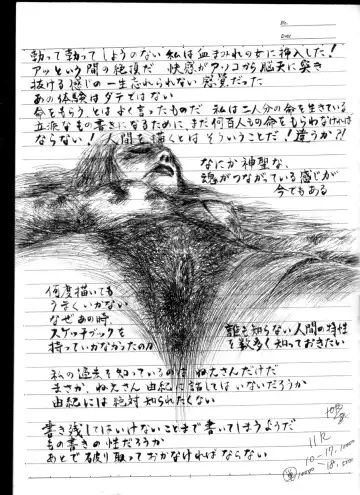 No.
Date
勃って勃ってしようのない私は血まみれの女に挿入した!
アッという間の絶頂だ 快感がアソコから脳天に突き
抜ける感じの一生忘れられない感覚だった
あの体験はダテではない
命をもらう、とはよく言ったものだ 私は二人分の命を生きている
立派なもの書きになるために、まだ何百人もの命をもらわなければ
ならない! 人間を描くとはそういうことだ!違うか?!
なにか神聖な、
魂がつながっている感じが
今でもある
何度描いても
うまくいかない
なぜあの時、
スケッチブックを
持っていかなかったのか
誰も知らない人間の特性
を数多く知っておきたい
私の過去を知っているのは ねえさんだけだ
まさか、ねえさん 由紀に話してはいないだろうか
由紀には絶対知られたくない
書き残してはいけないことまで書いてしまうようだ
もの書きの性だろうか
あとで破り取っておかなければならない
11R